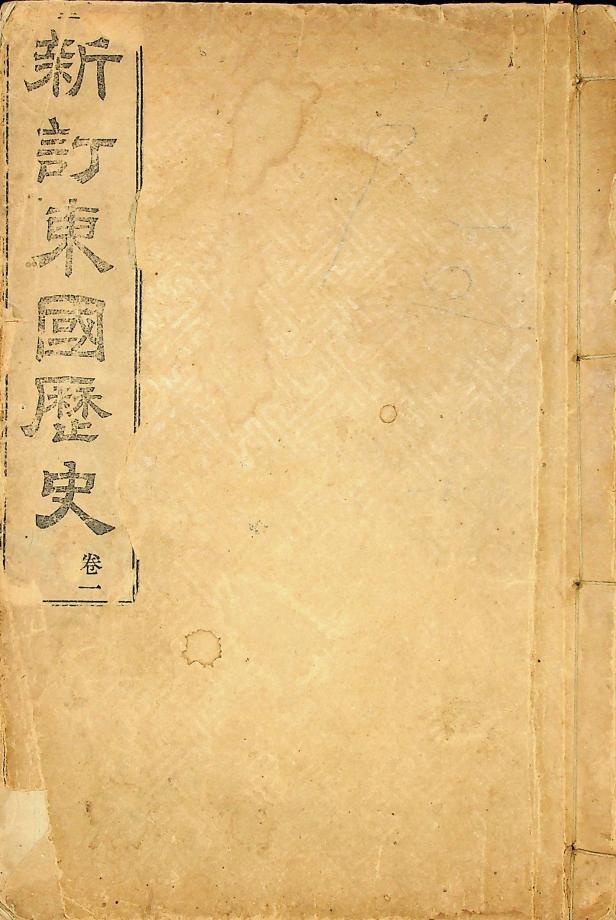 新訂東國歷史
卷一